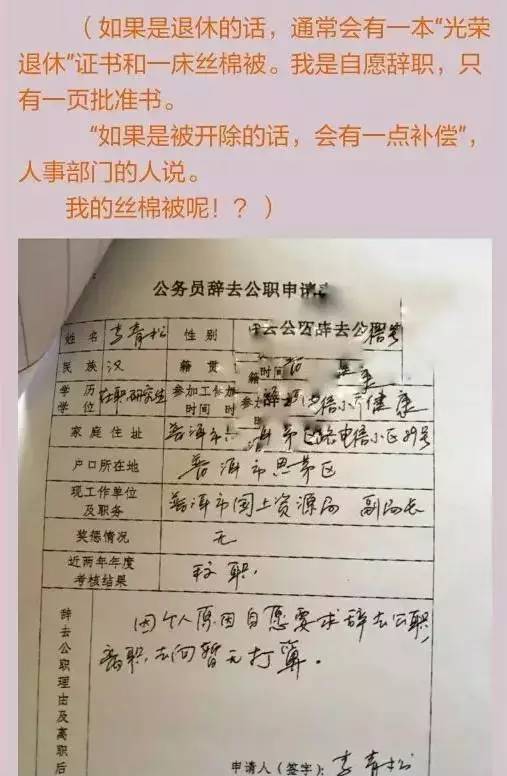 （如果是退休的话，通常会有一本“光荣
退休”证书和一床丝棉被。我是自愿辞职，只
有一页批准书。
“如果是被开除的话，会有一点补偿”，
人事部门的人说。
我的丝棉被呢！？）
公务员辞去公职申请
姓名 李青松 性别 公辞去公
民族 汉 籍贯 籍
学历学位 在职研究生 参加工作时间 健康
家庭住址 普洱市 电信小区29号
户口所在地 普洱市思茅区
现工作单位及职务 普洱市国土资源局 副局长
奖惩情况 无
近两年年度考核结果 称职.
辞去公职理由及离职后
因个人原因自愿要求辞去公职,
离职去向暂无打算.
申请人（签字）：李青松